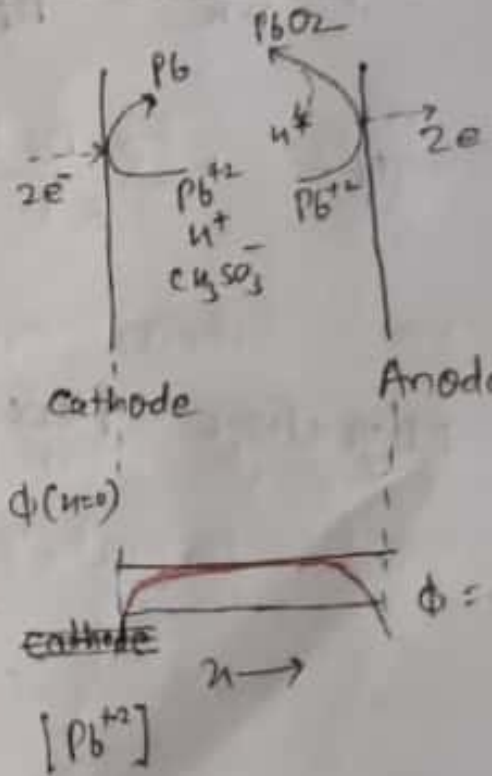 PbO2
Pb
H+
2e-
2e
Pb+2
Pb+2
H+
CH3SO3-
Cathode
Anode
ϕ(x=0)
ϕ =
cathode
x→
[Pb+2]